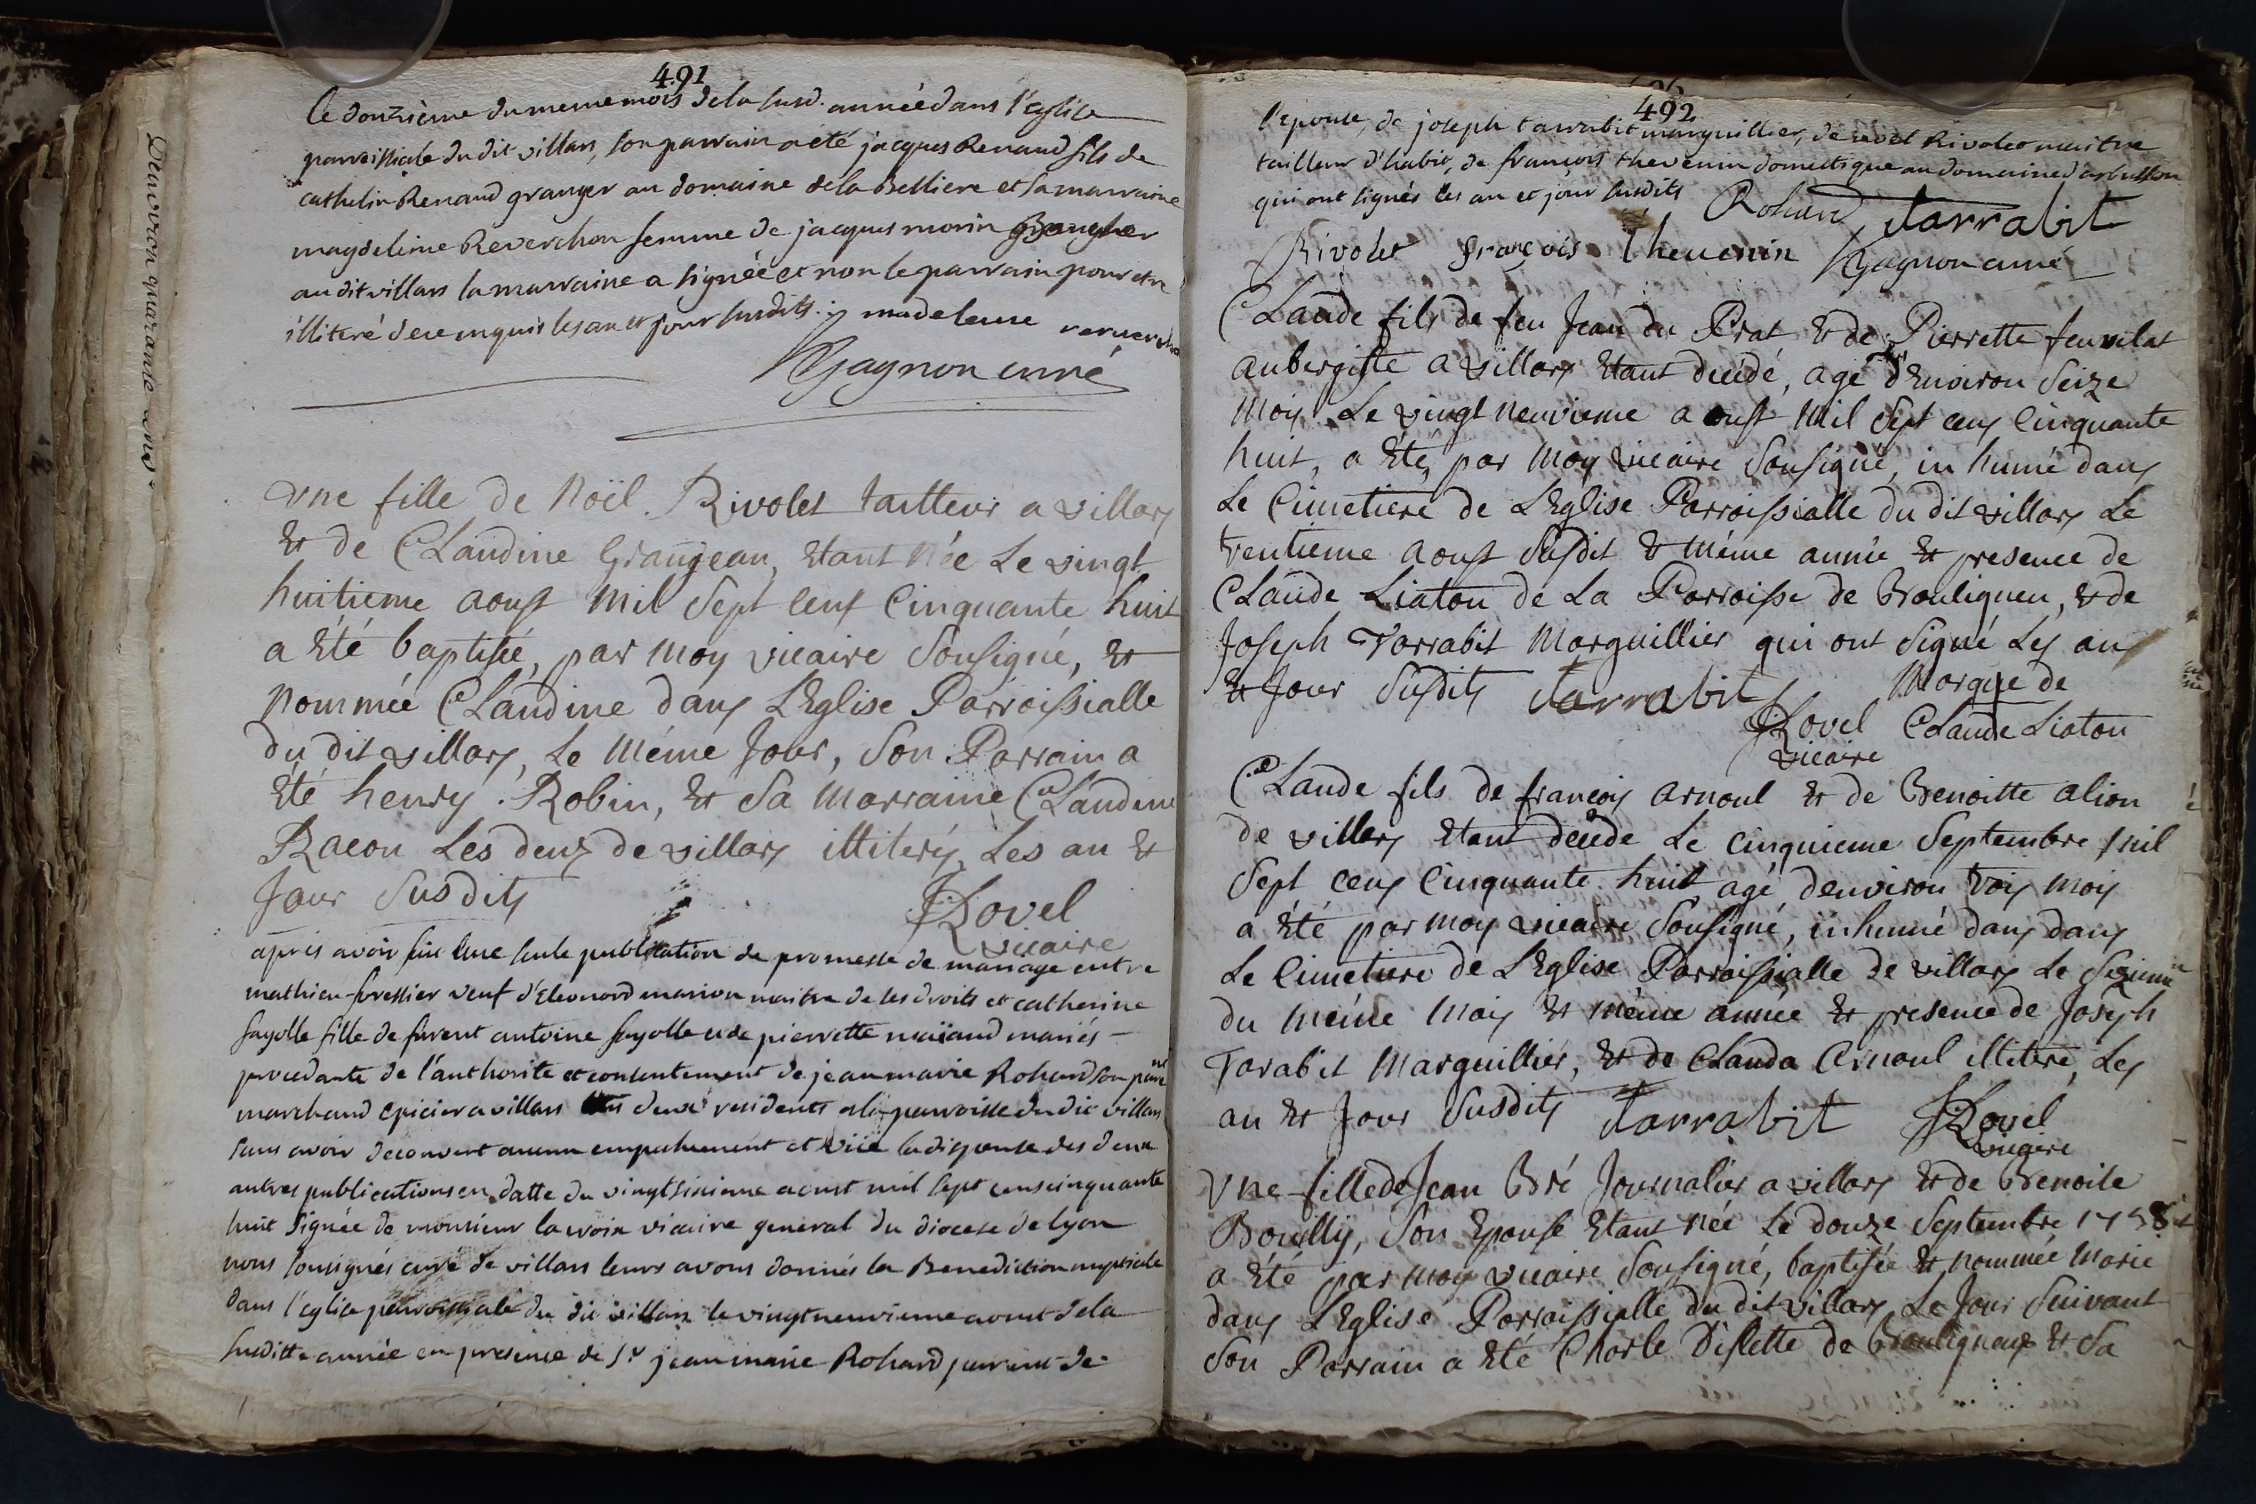 491
le douzième du meme mois de la susd. année dans l'eglise
parroissiale du dit villars, son parrain a été jacques Renaud fils de
cathelin Renaud granger au domaine de la Belliere et sa marraine
magdeleine Reverchon femme de jacques morin granger
au dit villars la marraine a signée et non le parrain pour etre
illiteré de ce inquis les an et jour susdits. madeleine reverchon
Gagnon curé
une fille de Noël Rivolet tailleur a villars
& de Claudine Granjean, etant née Le vingt
huitieme aoust Mil Sept Cent Cinquante huit
a Eté baptisée, par Moy vicaire Sousigné, &
Nommée Claudine dans L'Eglise Parroissialle
du dit villars, Le Méme Jour, Son Parrain a
Eté henry Robin, & Sa Marraine Claudine
Racon Les deux de villars illiterés, Les an &
Jour Susdits
JRovel
vicaire
après avoir fait une seule publication de promesse de mariage entre
mathieu forestier veuf d'Eleonord marion maitre de ses droits et catherine
fayolle fille de furent antoine fayolle et de pierrette maïaud mariés
procedante de l'authorité et consentement de jean marie Rohard son parent
marchand epicier a villars les deux residents a la parroisse du dit villars
sans avoir decouvert aucun empechement et vüe la dispense des deux
autres publications en datte du vingt sixieme aoust mil sept cens cinquante
huit signée de monsieur lavoix vicaire general du diocese de lyon
nous sousignés curé de villars leurs avons donnés la Benediction nuptiale
dans l'eglise parroissiale du dit villars le vingt neuvieme aoust de la
susditte année en presence de Sr jean marie Rohard parent de
Dauvion quarante ans
492
l'epouse, de joseph tarrabit marguillier, de noel Rivolet maitre
tailleur d'habit, de françois thevenin domestique au domaine d'arbusson
qui ont signés les an et jour susdits Rohard Tarrabit
Rivolet françois Thevenin Gagnon curé
Claude fils de feu Jean du Prat & de Pierrette feuvelat
aubergiste a villars Etant décédé, agé d'Environ Seize
Mois Le vingt neuvieme aoust Mil Sept cens Cinquante
huit, a Eté, par Moy vicaire Sousigné, in humé dans
Le Cimetiere de L'Eglise Parroissialle du dit villars Le
trentieme aoust Susdit & Méme année & presence de
Claude Liaton de La Parroisse de Bouligneu, & de
Joseph Tarrabit Marguillier qui ont Signé Les an
& Jour Susdits Tarrabit
Marque de
Claude Liaton
JRovel
vicaire
Claude fils de françois Arnoul & de Benoitte alion
de villars Etant décédé Le Cinquieme Septembre Mil
Sept cens Cinquante huit agé d'environ trois Mois
a Eté par Moy vicaire Sousigné, inhumé dans dans
Le Cimetiere de L'Eglise Parroissialle de villars Le Sixieme
du Méme Mois & Méme année & presence de Joseph
Tarabit Marguillier, & de Clauda Arnoul illiteré, Les
an & Jour Susdits Tarrabit JRovel
vicaire
Une fille de Jean Bré Journalier a villars & de Benoite
Bouilly, Son Epouse Etant née Le douze Septembre 1758
a Eté par Moy vicaire Sousigné, baptisée & nommée Marie
dans L'Eglise Parroissialle du dit villars Le Jour Suivant
Son Parrain a Eté Charle Dislette de Bouligneux & Sa